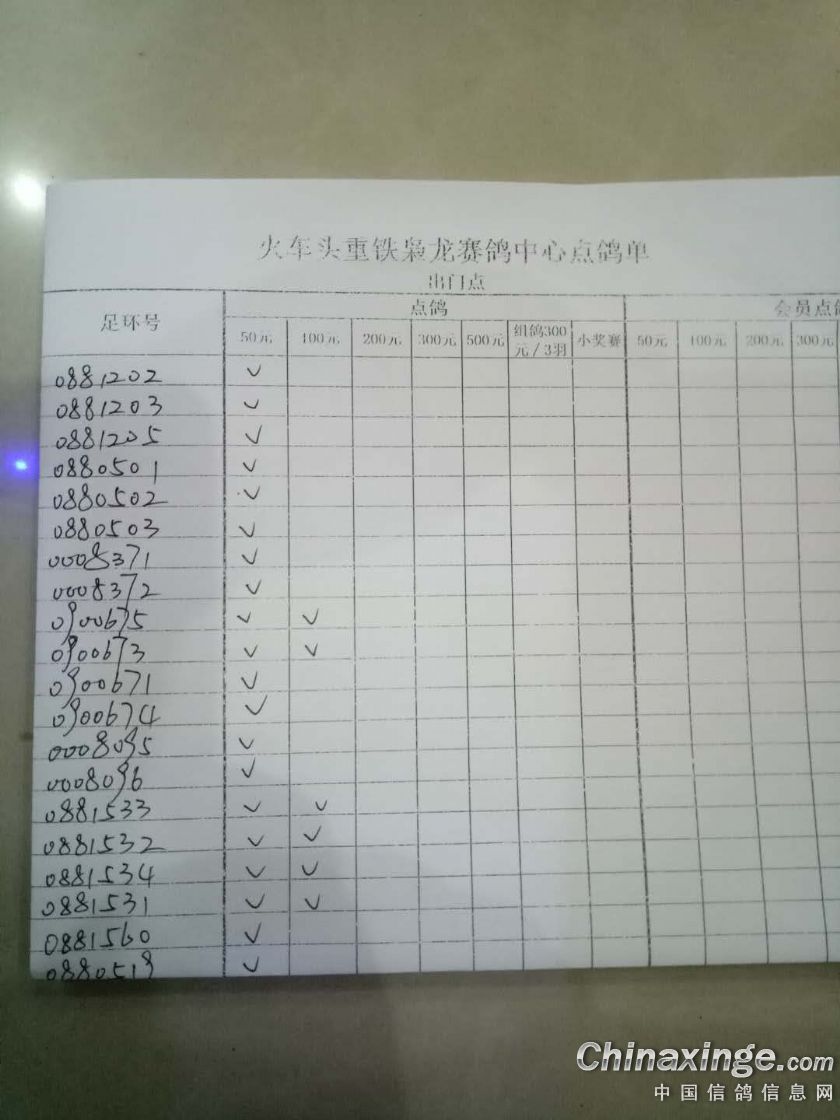 火车头重铁枭龙赛鸽中心点鸽单
出门点
足环号 点鸽 会员点鸽
50元 100元 200元 300元 500元 组鸽300元/3羽 小奖赛 50元 100元 200元 300元
0881202 ✓
0881203 ✓
0881205 ✓
0880501 ✓
0880502 ✓
0880503 ✓
0008371 ✓
0008372 ✓
0900675 ✓ ✓
0900673 ✓ ✓
0900671 ✓
0900674 ✓
0008095 ✓
0008096 ✓
0881533 ✓ ✓
0881532 ✓ ✓
0881534 ✓ ✓
0881531 ✓ ✓
0881560 ✓
0880519 ✓
Chinaxinge.com
中国信鸽信息网